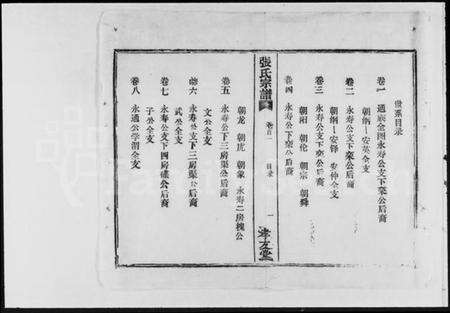 世系目录
卷一 通族金图永寿公支下荣公后裔
朝炳—安英全支
卷二 永寿公支下荣公后裔
朝炳—安铎 安仲全支
卷三 永寿公支下荣公后裔
朝阳 朝伦 朝宗 朝舜
卷四 永寿公下荣公后裔
張氏宗譜
卷首一 目录 一
孝友堂
朝龙 朝虎 朝象 永寿二房槐公
卷五 永寿公下三房渠公后裔
文公全支
卷六 永寿公支下三房渠公后裔
武公全支
卷七 永寿公支下四房公后裔
子公全支
卷八 永通公学渭全支